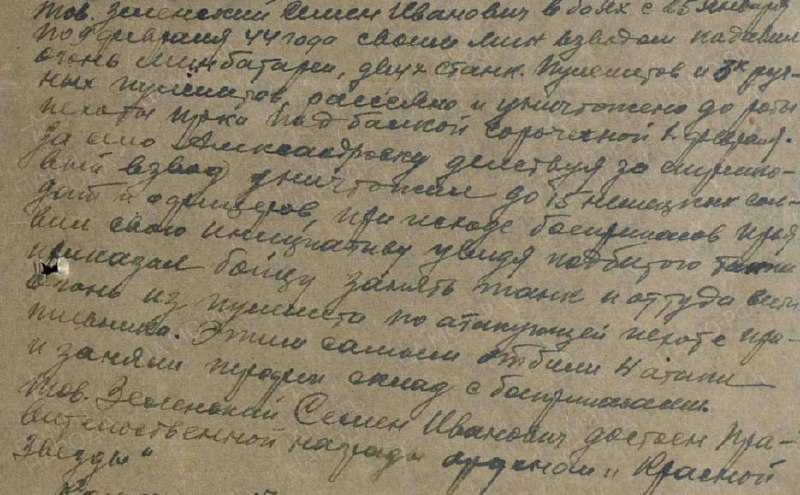 Тов. Зеленский Семен Иванович в боях с 26 января
по февраля 44 года своим мин взводом подавил
огонь минбатареи, двух станк. пулеметов и 3х руч-
ных пулеметов, рассеяно и уничтожено до роты
пехоты пр-ка под балкой 2 февраля.
за село Александровку действуя за стрелко-
вый взвод уничтожили до 15 немецких сол-
дат и офицеров, при исходе боеприпасов проя
вил свою инициативу увидя подбитого танка
приказал бойцу занять танк и оттуда вести
огонь из пулемета по атакующей пехоте про-
тивника. Этим самым отбили 4 атаки
и заняли трофеи склад с боеприпасами.
Тов. Зеленский Семен Иванович достоен Пра-
вительственной награды орденом "Красной
Звезды"